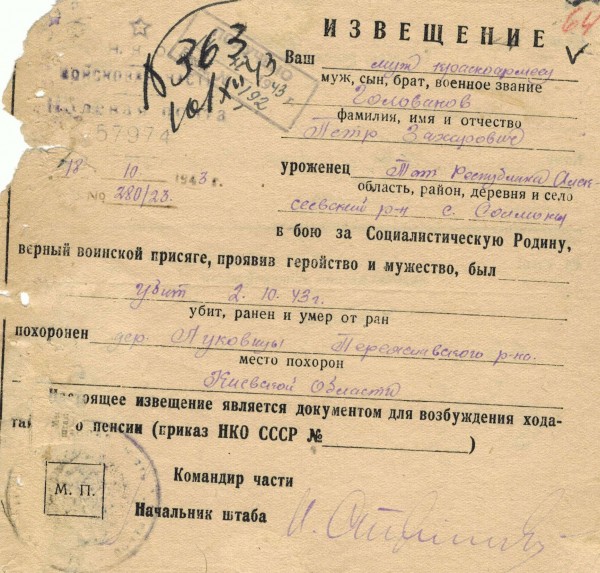 ИЗВЕЩЕНИЕ
64
№ 363
10/XII 43
Ваш муж красноармеец
муж, сын, брат, военное звание
Голованов
фамилия, имя и отчество
Петр Захарович
Полевая почта
57974
18 10 1943
№ 380/23
уроженец Тат Республика Алек-
область, район, деревня и село
сеевский р-н с.
в бою за Социалистическую Родину,
верный воинской присяге, проявив геройство и мужество, был
убит 2.10.43 г.
убит, ранен и умер от ран
похоронен дер. Луковицы р-на.
место похорон
Киевской Области
Настоящее извещение является документом для возбуждения хода-
о пенсии (приказ НКО СССР № )
Командир части
М. П.
Начальник штаба